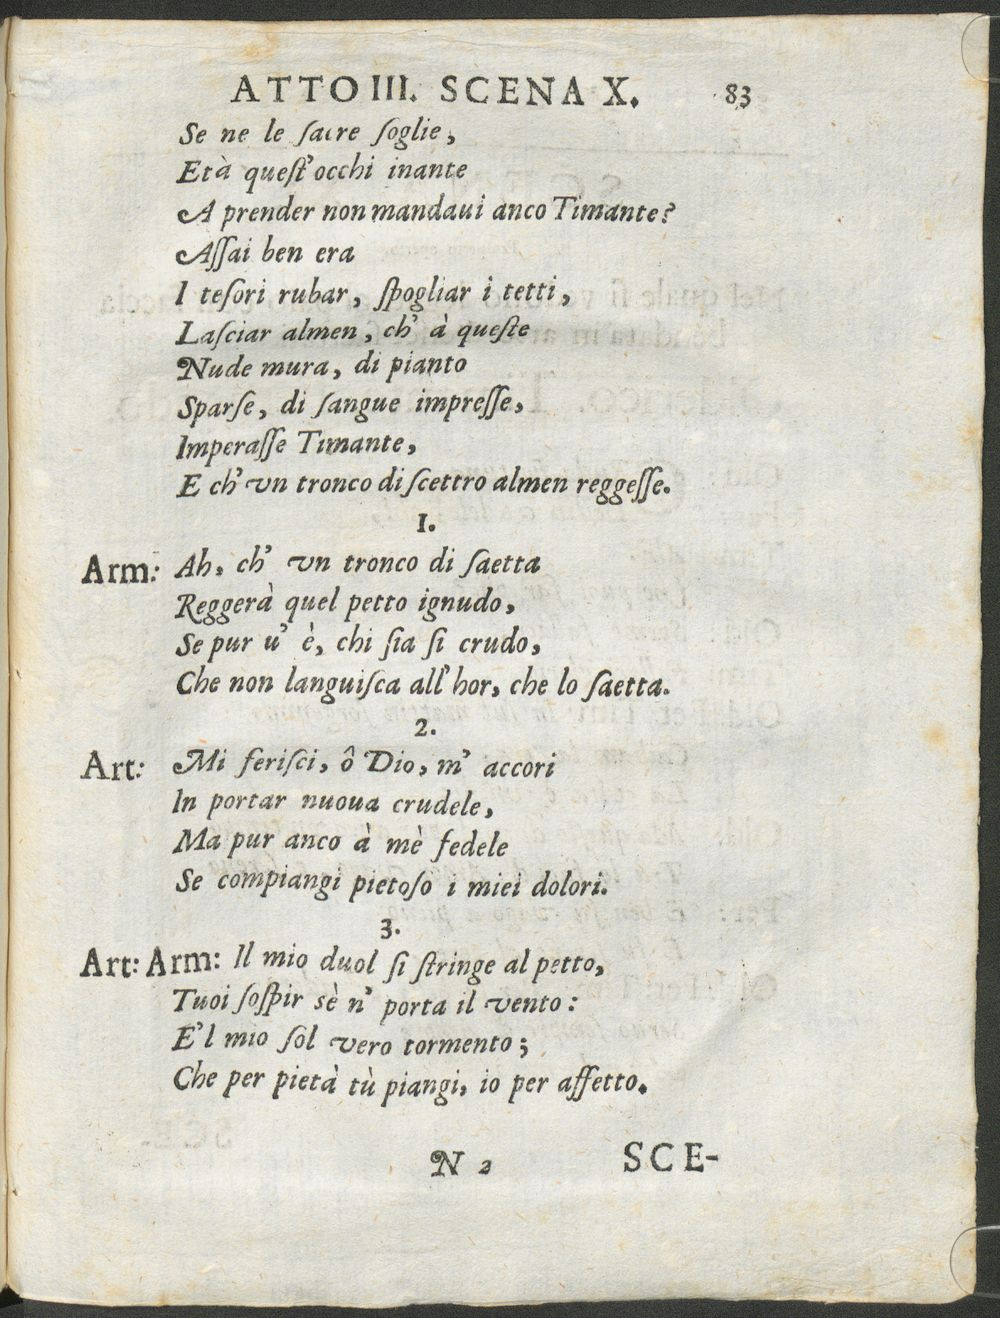 ATTO III. SCENA X. 83
Se ne le sacre soglie,
Età quest'occhi inante
A prender non mandaui anco Timante?
Assai ben era
I tesori rubar, spogliar i tetti,
Lasciar almen, ch' à queste
Nude mura, di pianto
Sparse, di sangue impresse,
Imperasse Timante,
E ch' vn tronco di scettro almen reggesse.
1.
Arm: Ah, ch' vn tronco di saetta
Reggerà quel petto ignudo,
Se pur u' è, chi sia si crudo,
Che non languisca all' hor, che lo saetta.
2.
Art: Mi ferisci, ô Dio, m' accori
In portar nuoua crudele,
Ma pur anco à mè fedele
Se compiangi pietoso i miei dolori.
3.
Art: Arm: Il mio duol si stringe al petto,
Tuoi sospir sè n' porta il vento:
E'l mio sol vero tormento;
Che per pietà tù piangi, io per affetto.
N 2 SCE-